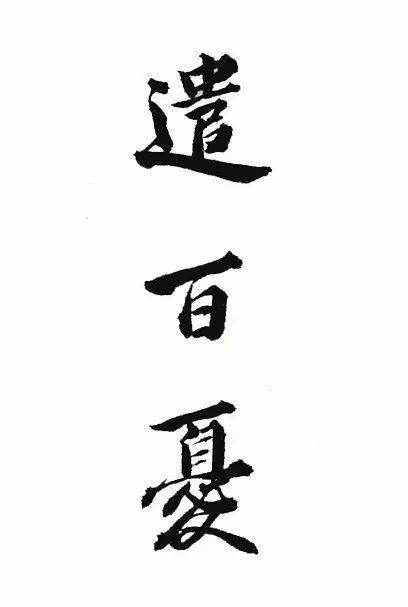 遣百憂